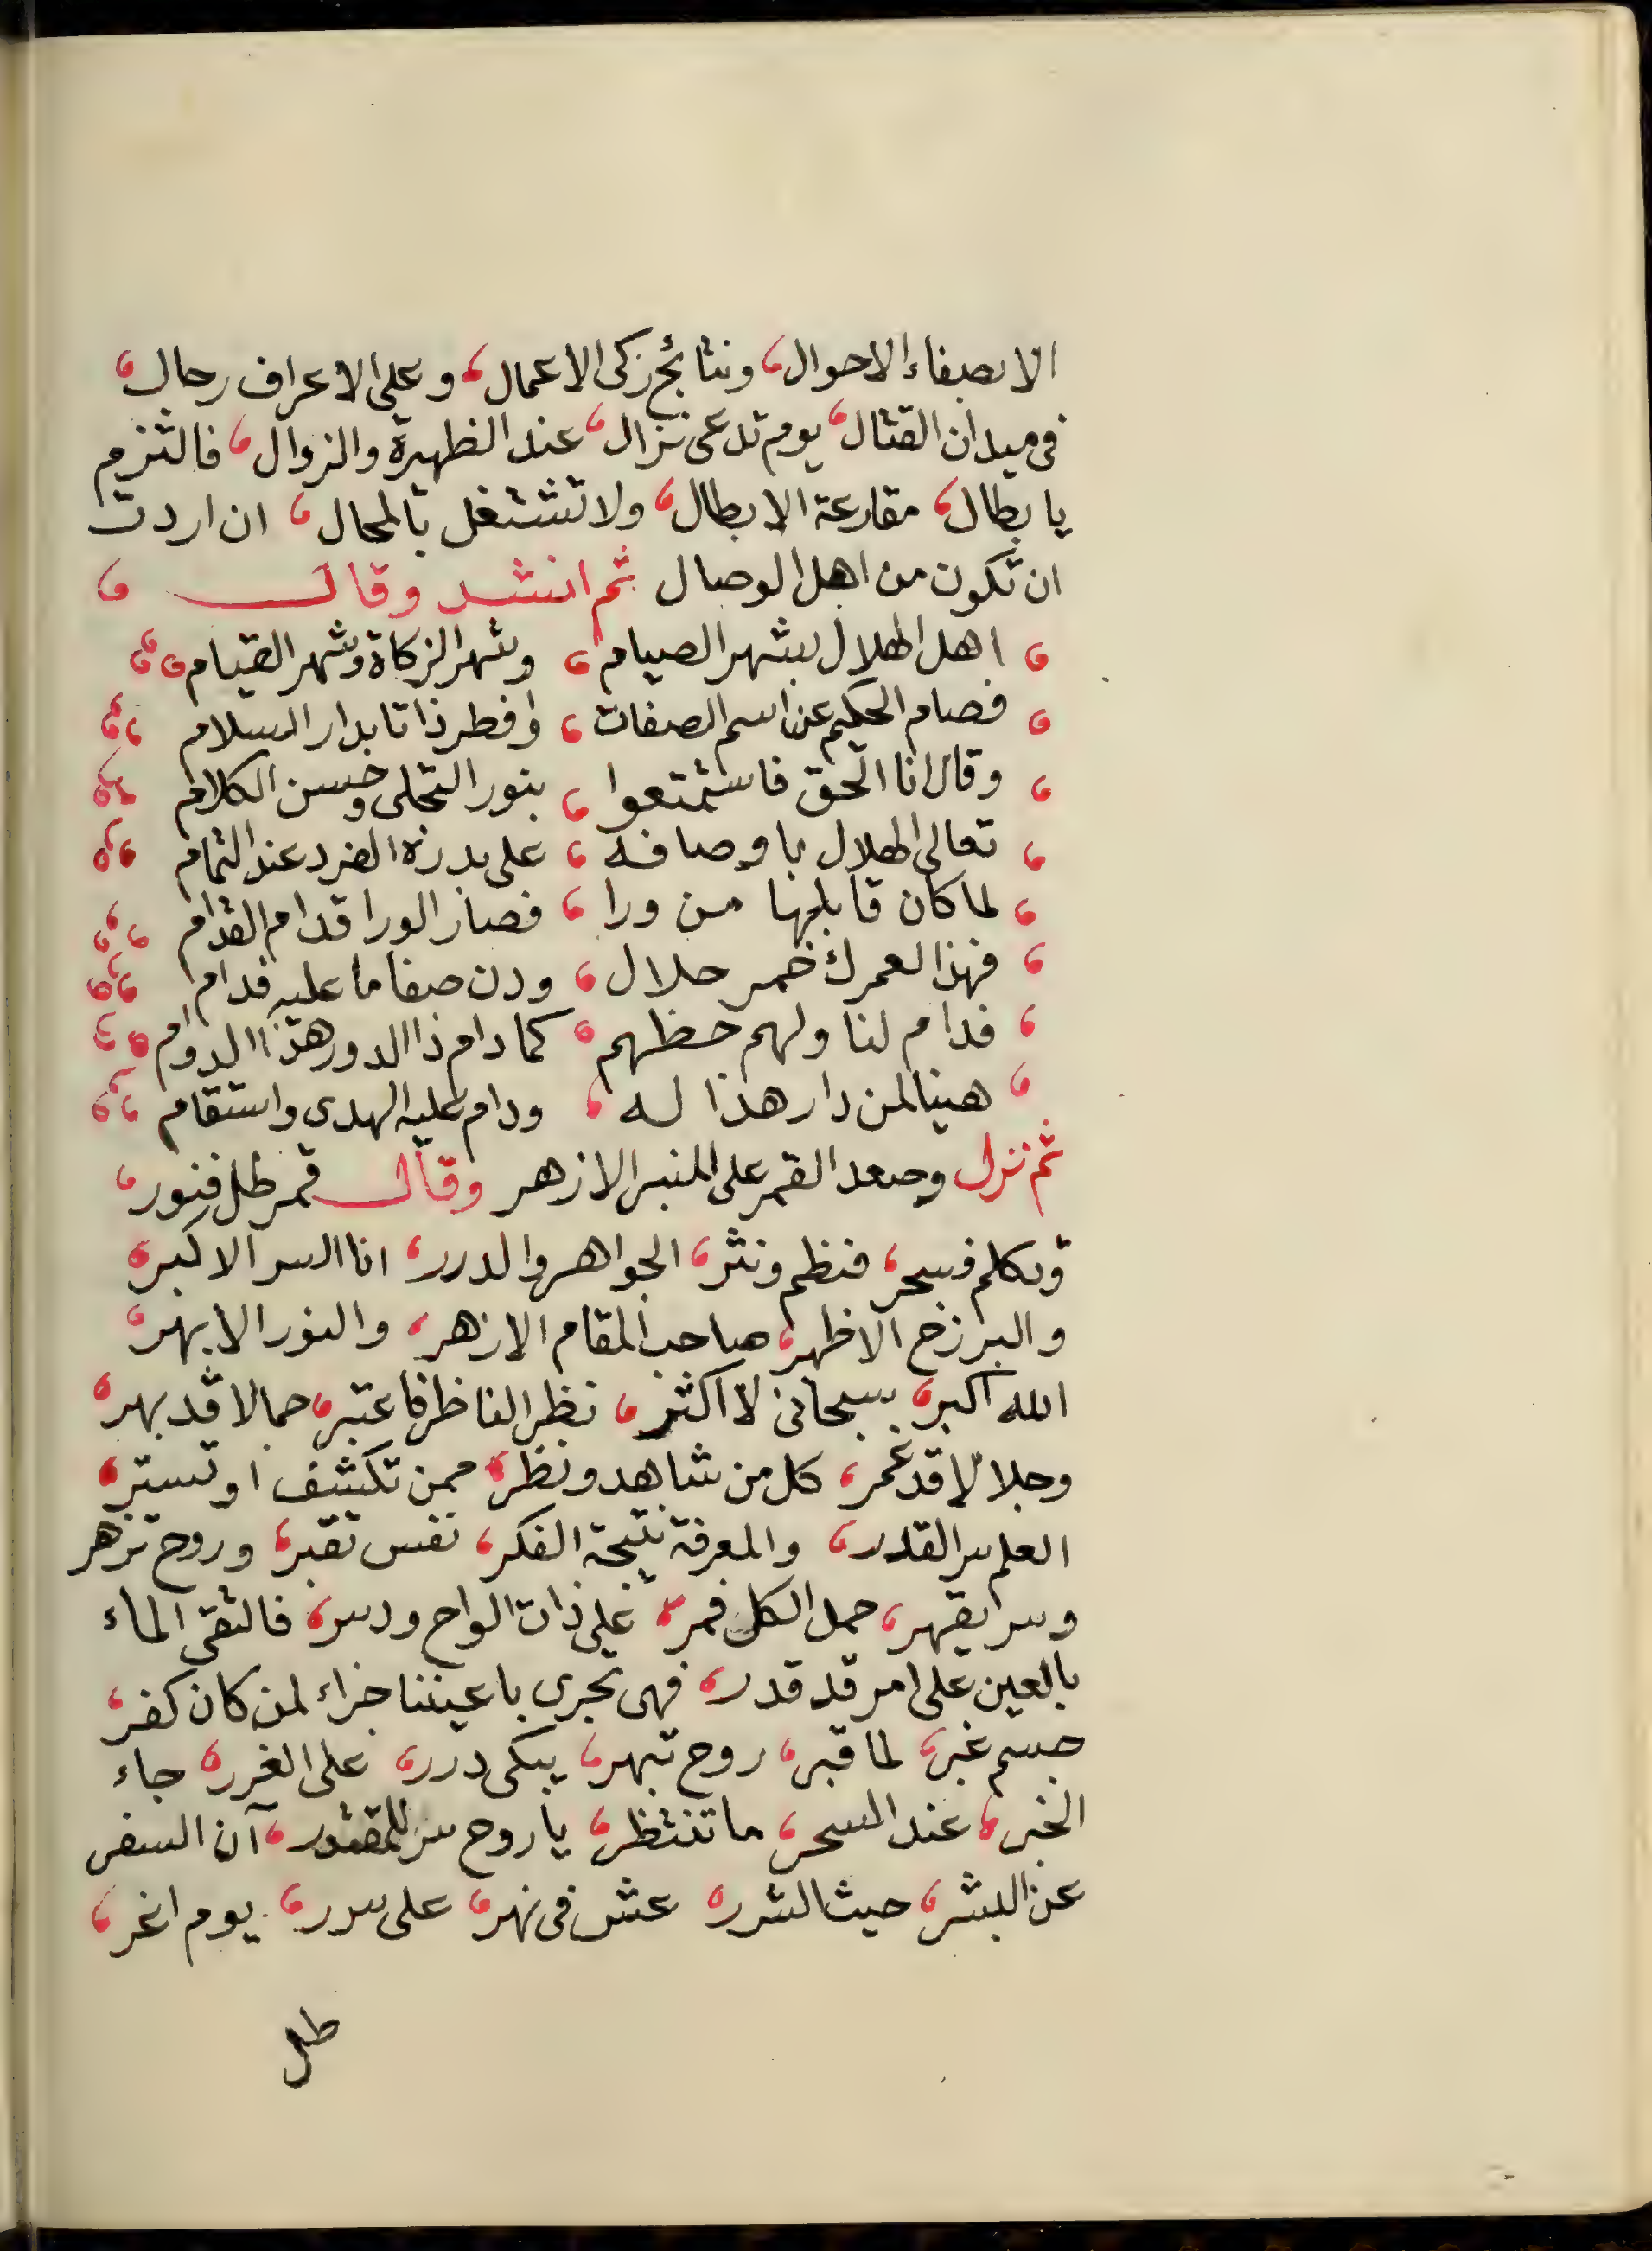 الا بصفاء الاحوال، ونتائج زكى الاعمال، وعلى الاعراف رجال،
فى ميدان القتال، يوم تدعى نزال، عند الظهيرة والزوال، فالتزم
يا بطال، مقارعة الابطال، ولا تشتغل بالمحال، ان اردت
ان تكون من اهل الوصال ثم انشد وقال ،
، اهل الهلال بشهر الصيام ، وشهر الزكاة وشهر القيام ،،،
، فصام الحكيم عن اسم الصفات ، وافطر ذاتا بدار السلام ،،،
، وقال انا الحق فاستمتعوا ، بنور التجلى وحسن الكلام ،،،
، تعالى الهلال باوصافه ، على بدره الفرد عند التمام ،،،
، لما كان قابلها من ورا ، فصار الورا قدام القدام ،،،
، فهذا لعمرك خمر حلال ، ودن صفا ما عليه فدام ،،،
، فدام لنا ولهم حظهم ، كما دام ذا الدور هذا الدوام ،،،
، هنيا لمن دار هذا له ، ودام عليه الهدى واستقام ،،،
ثم نزل وصعد القمر على المنبر الازهر وقال قمر طل فنور،
وتكلم فسحر، فنظم ونثر، الجواهر والدرر، انا السر الاكبر،
والبرزخ الاظهر، صاحب المقام الازهر، والنور الابهر،
الله اكبر، سبحانى لا اكثر، نظر الناظر فاعتبر، جمالا قد بهر،
وجلالا قد غمر، كل من شاهد ونظر، ممن تكشف او تستر،
العلم سر القدر، والمعرفة نتيجة الفكر، نفس تقبر، وروح تزهر
وسر يقهر، حمل الكل فمر، على ذات الواح ودسر، فالتقى الماء
بالعين على امر قد قدر، فهى تجرى باعيننا جزاء لمن كان كفر،
جسم غبر، لما قبر، روح تبهر، يبكى درر، على الغرر، جاء
الخبر، عند السحر، ما تنتظر، يا روح سر للمقتدر، آن السفر
عن البشر، حيث السرر، عش فى نهر، على سرر، يوم اغر،
طل